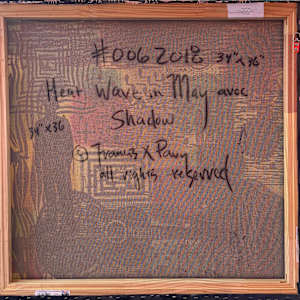 #006 2018 34"x36"
Heat Wave in May avec
Shadow
34"x36
© Francis X Pavy
all rights reserved